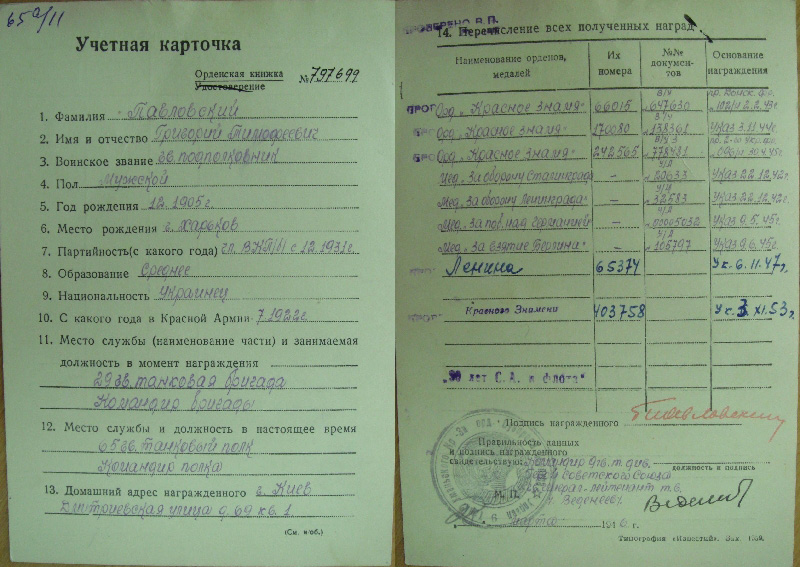 650/11
Учетная карточка
Орденская книжка
Удостоверение
№ 797699
1. Фамилия Павловский
2. Имя и отчество Григорий Тимофеевич
3. Воинское звание гв. подполковник
4. Пол Мужской
5. Год рождения 12.1905 г.
6. Место рождения г. Харьков
7. Партийность (с какого года) чл. ВКП/б/ с 12.1931г.
8. Образование Среднее
9. Национальность Украинец
10. С какого года в Красной Армии 7.1922г.
11. Место службы (наименование части) и занимаемая
должность в момент награждения
29 гв. танковая бригада
Командир бригады
12. Место службы и должность в настоящее время
65 гв. Танковый полк
Командир полка
13. Домашний адрес награжденного г. Киев
Дмитриевская улица д. 69 кв. 1
(См. н/об.)
ПРОВЕРЕНО В.П.
14. Перечисление всех полученных наград
Наименование орденов, медалей
Их номера
№№ документов
Основание награждения
Орд. "Красное знамя" 66015 в/ч 647630
Орд. "Красное знамя" 170080 в/ч 138361 Указ 3.11.44г.
Орд. "Красное знамя" 242565 в/ч 778481
Мед. За оборону Сталинграда — 20633 Указ 22.12.42г.
Мед. За оборону Ленинграда — 32583 Указ 22.12.42г.
Мед. За поб. над Германией — 0005032 Указ 9.5.45г.
Мед. За взятие Берлина — 105797 Указ 9.6.45г.
Ленина 65374 Ук. 6.11.47г.
Красного Знамени 403758 Ук. 3 XI.53г.
"30 лет С.А. и флота"
Подпись награжденного Павловский
Правильность данных
и подпись награжденного
свидетельствую: Командир 9 гв. т. див.
должность и подпись
Герой Советского Союза
гв. генерал-лейтенант т.в.
Веденеев
М. П.
марта 1946 г.
Типография «Известий». Зак.